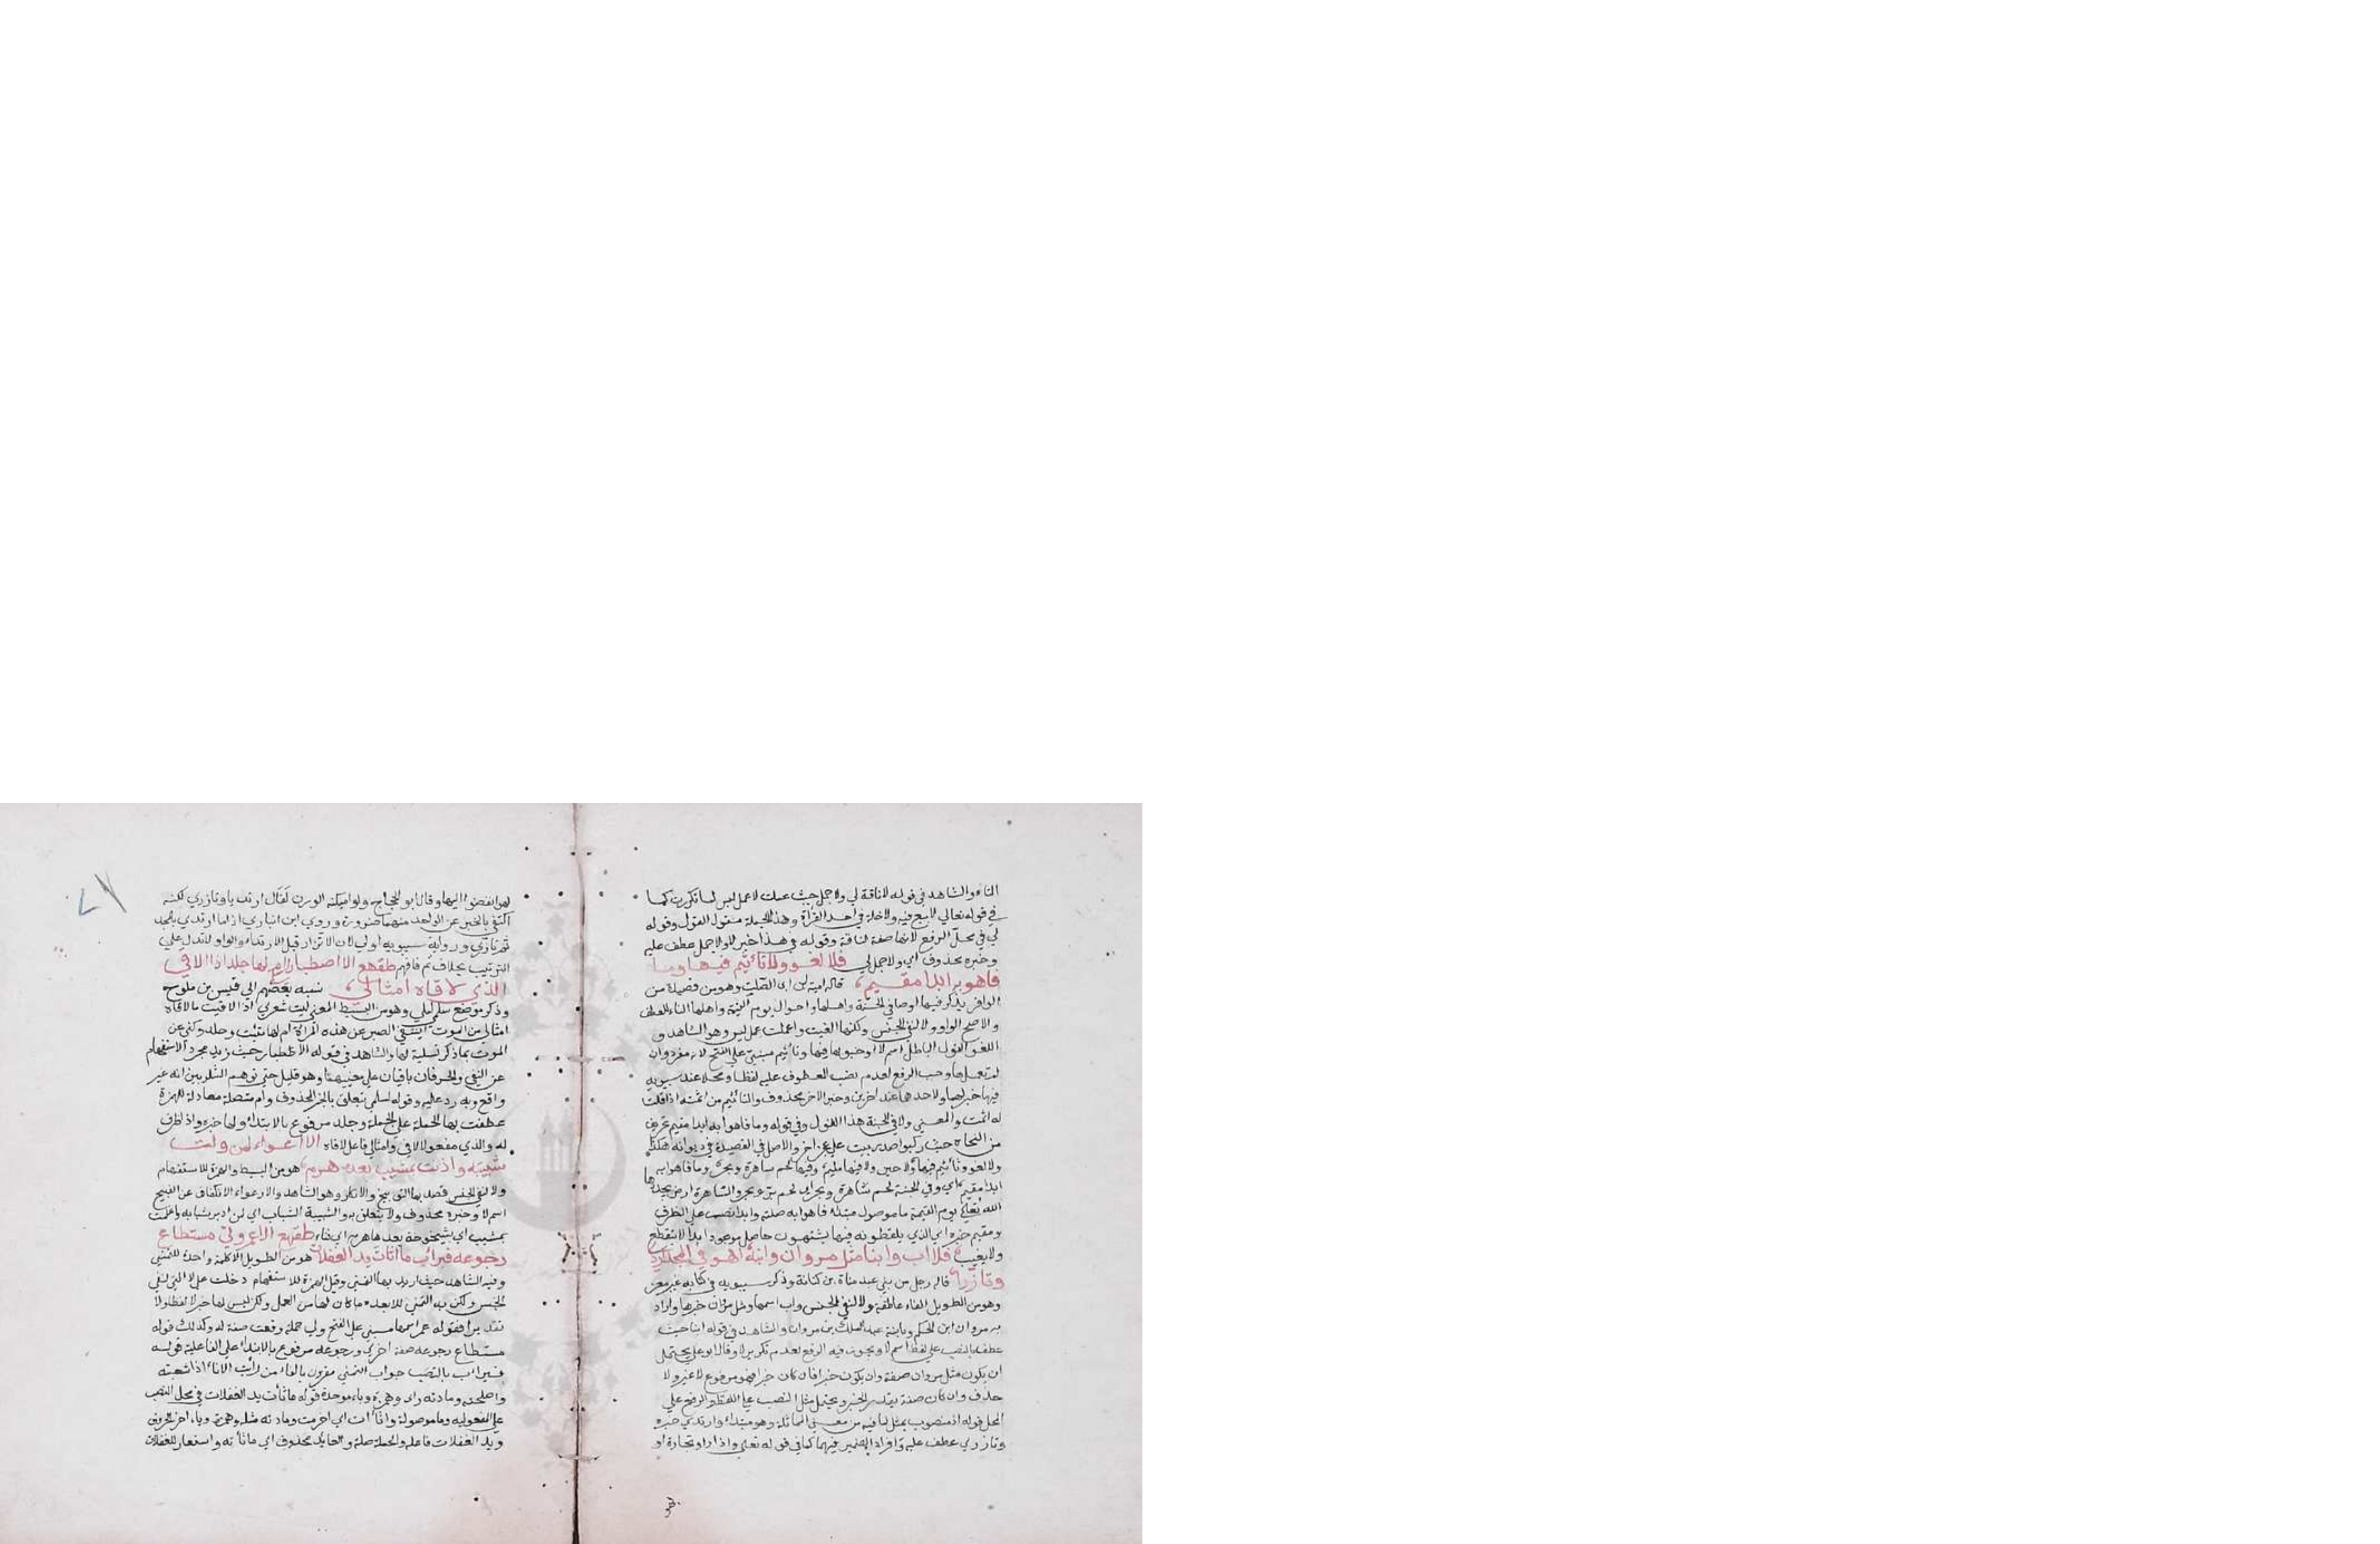 التاء والشاهد في قوله لا ناقة لي ولا جمل حيث عملت لا عمل ليس لما تكررت كما
في قوله تعالي لا بيع فيه ولا خلة في احد القرأة وهذه الجملة مقول القول وقوله
لي في محل الرفع لانها صفة لناقة وقوله في هذا خبر لا ولا جمل عطف عليه
وخبره محذوف اي ولا جمل لي فلا لغو ولا تأثيم فيها وما
فاهوا به ابدا مقيم قاله امية بن ابي الصلت وهو من قصيدة من
الوافر يذكر فيها اوصاف الجنة واهلها واحوال يوم القيمة واهلها
والاصح الواو ولا لنفي الجنس ولكنها الغيت واعملت عمل ليس وهو الشاهد و
اللغو القول الباطل اسم لا وخبره لها فيها وتأثيم مبني علي الفتح لانه مفرد وان
لم تعملها وجب الرفع لعدم نصب المعطوف عليه لفظا ومحلا عند سيبويه
فيها خبر لهما ولاحدهما عند اخرين وخبر الاخر محذوف والتأثيم من اثمته اذا قلت
له اثمت والمعني ولا في الجنة هذا القول وفي قوله وما فاهوا به ابدا مقيم تحريف
من النحاة حيث ركبوا صدر بيت علي عجز اخر والاصل في القصيدة في ديوانه هكذا
ولا لغو ولا تأثيم فيها ولا حين ولا فيها مليم وفيها لحم ساهرة وبحر وما فاهوا به
ابدا مقيم اي وفي الجنة لحم ساهرة وبحر اي لحم بر وبحر والساهرة ارض يجددها
الله تعالي يوم القيمة ما موصول مبتدأ فاهوا به صلته وابدا نصب علي الظرف
ومقيم خبره اي الذي يلفظون به فيها يشتهون حاصل موجود ابدا لا ينقطع
ولا يغيب فلا اب وابنا مثل مروان وابنه اذا هو في المجد ارتدي
وتأزرا قاله رجل من بني عبد مناة بن كنانة وذكر سيبويه في كتابه غير معزو
وهو من الطويل الفاء عاطفة ولا لنفي الجنس واب اسمها ومثل مروان خبرها واراد
به مروان ابن الحكم وبابنه عبد الملك بن مروان والشاهد في قوله ابنا حيث
عطف بالنصب علي لفظ اسم لا ويجوز فيه الرفع لعدم تكرير لا وقال ابو علي يحتمل
ان يكون مثل مروان صفة وان يكون خبرا فان كان خبرا فهو مرفوع لا غير ولا
حذف وان كان صفة يقدر الخبر ويحتمل مثل النصب علي اللفظ والرفع علي
المحل قوله اذ منصوب بمثل لما فيه من معني المماثلة وهو مبتدا وارتدي خبره
وتازري عطف عليه وافراد الضمير فيهما كما في قوله تعالي واذا راوا تجارة او
لهوا
لهوا انفضوا اليها وقال ابو الحجاج ولو امكنه الوزن لقال ارتديا وتازرا لكنه
اكتفي بالخبر عن الواحد منهما ضرورة وروي ابن انباري اذا ما ارتدي بالمجد
ثم تازري ورواية سيبويه اولي لان الاتزار قبل الارتداء والواو لا تدل علي
الترتيب بخلاف ثم فافهم طقهع الا اصطبار لسلمي ام لها جلد اذا الاقي
الذي لاقاه امثالي نسبه بعضهم الي قيس بن ملوح
وذكر موضع سلمي ليلي وهو من البسيط المعني ليت شعري اذا لاقيت ما لاقاه
امثالي من الموت أينتفي الصبر عن هذه المرأة ام لها تثبت وجلد وكني عن
الموت بما ذكر تسلية لها والشاهد في قوله الا اصطبار حيث اريد مجرد الاستفهام
عن النفي والحرفان باقيان علي معنييهما وهو قليل حتي توهم الشلوبين انه غير
واقع وبه رد عليه وقوله لسلمي تعلق بالخبر المحذوف وام متصلة معادلة للهمزة
عطفت بها الجملة علي الجملة وجلد مرفوع بالابتداء ولها خبره واذا ظرف
له والذي مفعول لاقي وامثالي فاعل لاقاه الا ارعواء لمن ولت
شبيبته واذنت بمشيب بعده هرم هو من البسيط والهمزة للاستفهام
ولا لنفي الجنس قصد بها التوبيخ والانكار وهو الشاهد والارعواء الانكفاف عن القبيح
اسم لا وخبره محذوف ولا يتعلق به والشبيبة الشباب اي لمن ادبر شبابه واعلمت
بمشيب اي بشيخوخة بعدها هرم اي فناء طقهع الا عمر ولي مستطاع
رجوعه فيرأب ما اثأت يد الغفلات هو من الطويل الا كلمة واحدة للتمني
وفيه الشاهد حيث اريد بها التمني وقيل الهمزة للاستفهام دخلت علي لا التي لنفي
الجنس ولكن به التمني ما كان لها من العمل ولكن ليس لها خبر لا لفظا ولا
تقديرا فقوله عمر اسمها مبني علي الفتح ولي جملة وقعت صفة له وكذلك قوله
مستطاع رجوعه صفة اخري ورجوعه مرفوع بالابتداء علي الفاعلية قوله
فيرأب بالنصب جواب التمني مقرون بالفاء من رأبت الاناء اذا شعبته
واصلحته ومادته راء وهمزة وباء موحدة قوله ما اثأت يد الغفلات في محل النصب
علي المفعولية وما موصولة واثأت اي اخرمت ومادته مثلثه وهمزة وياء اخر الحروف
ويد الغفلات فاعله والجملة صلة والعائد محذوف اي ما اثأته واستعار للغفلات